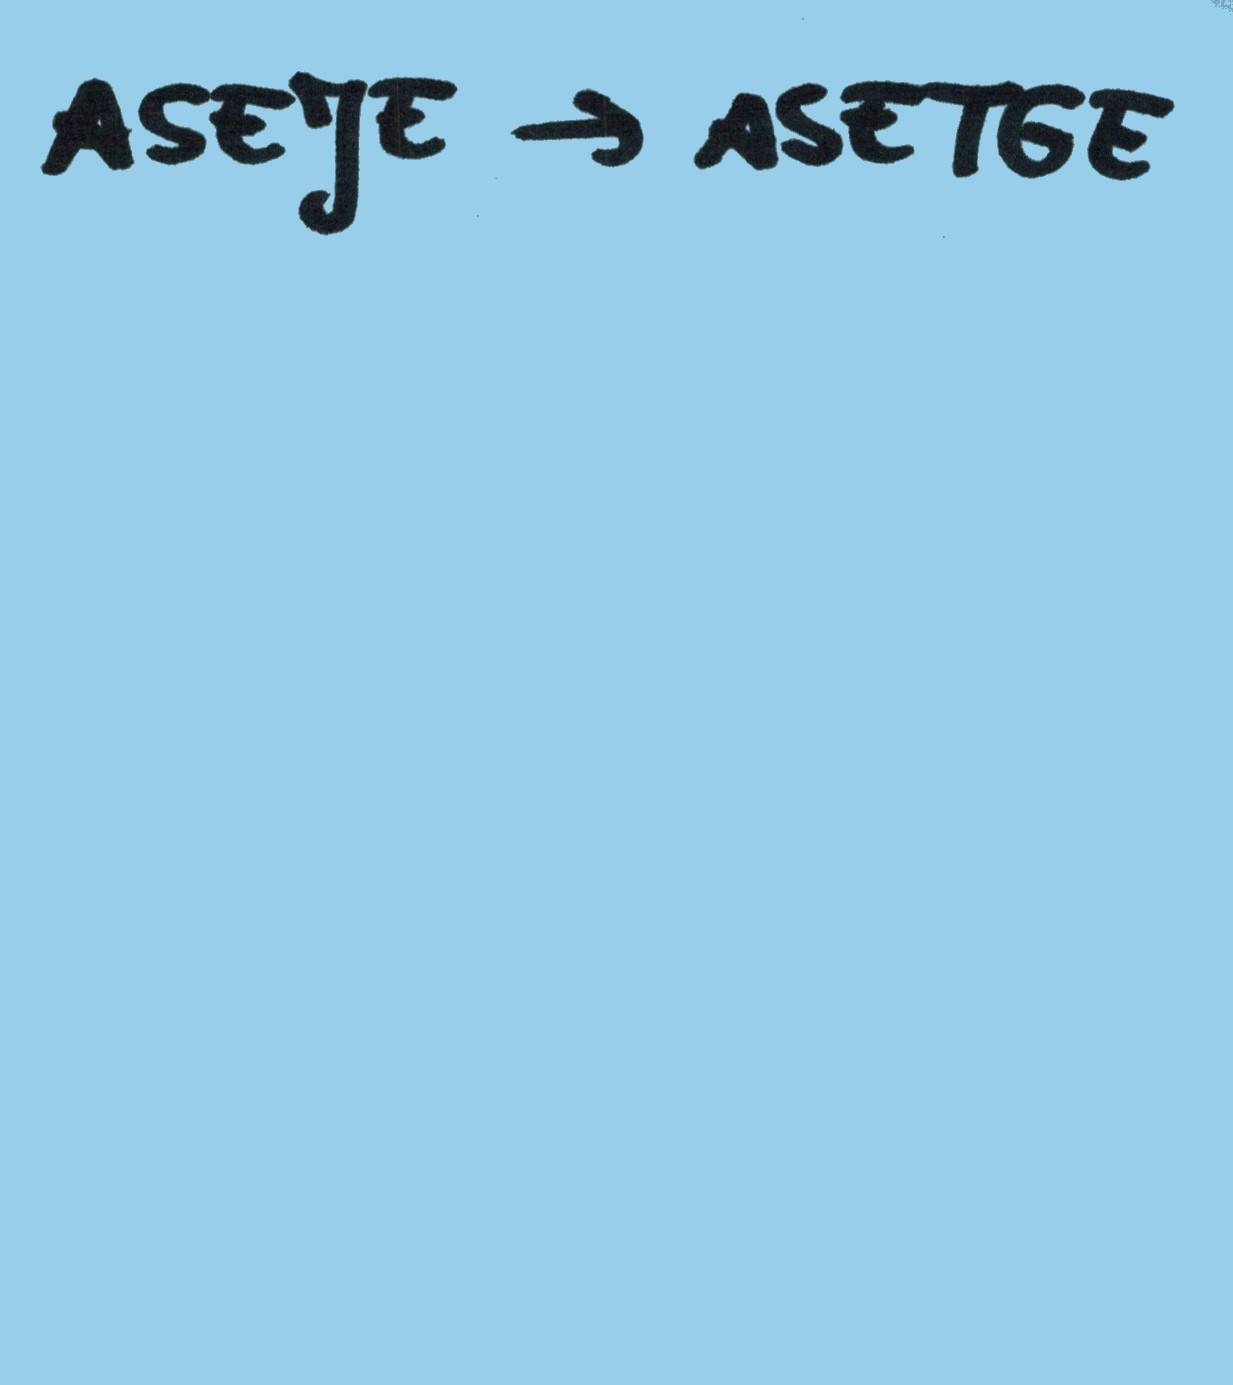 ASEJE → ASETGE